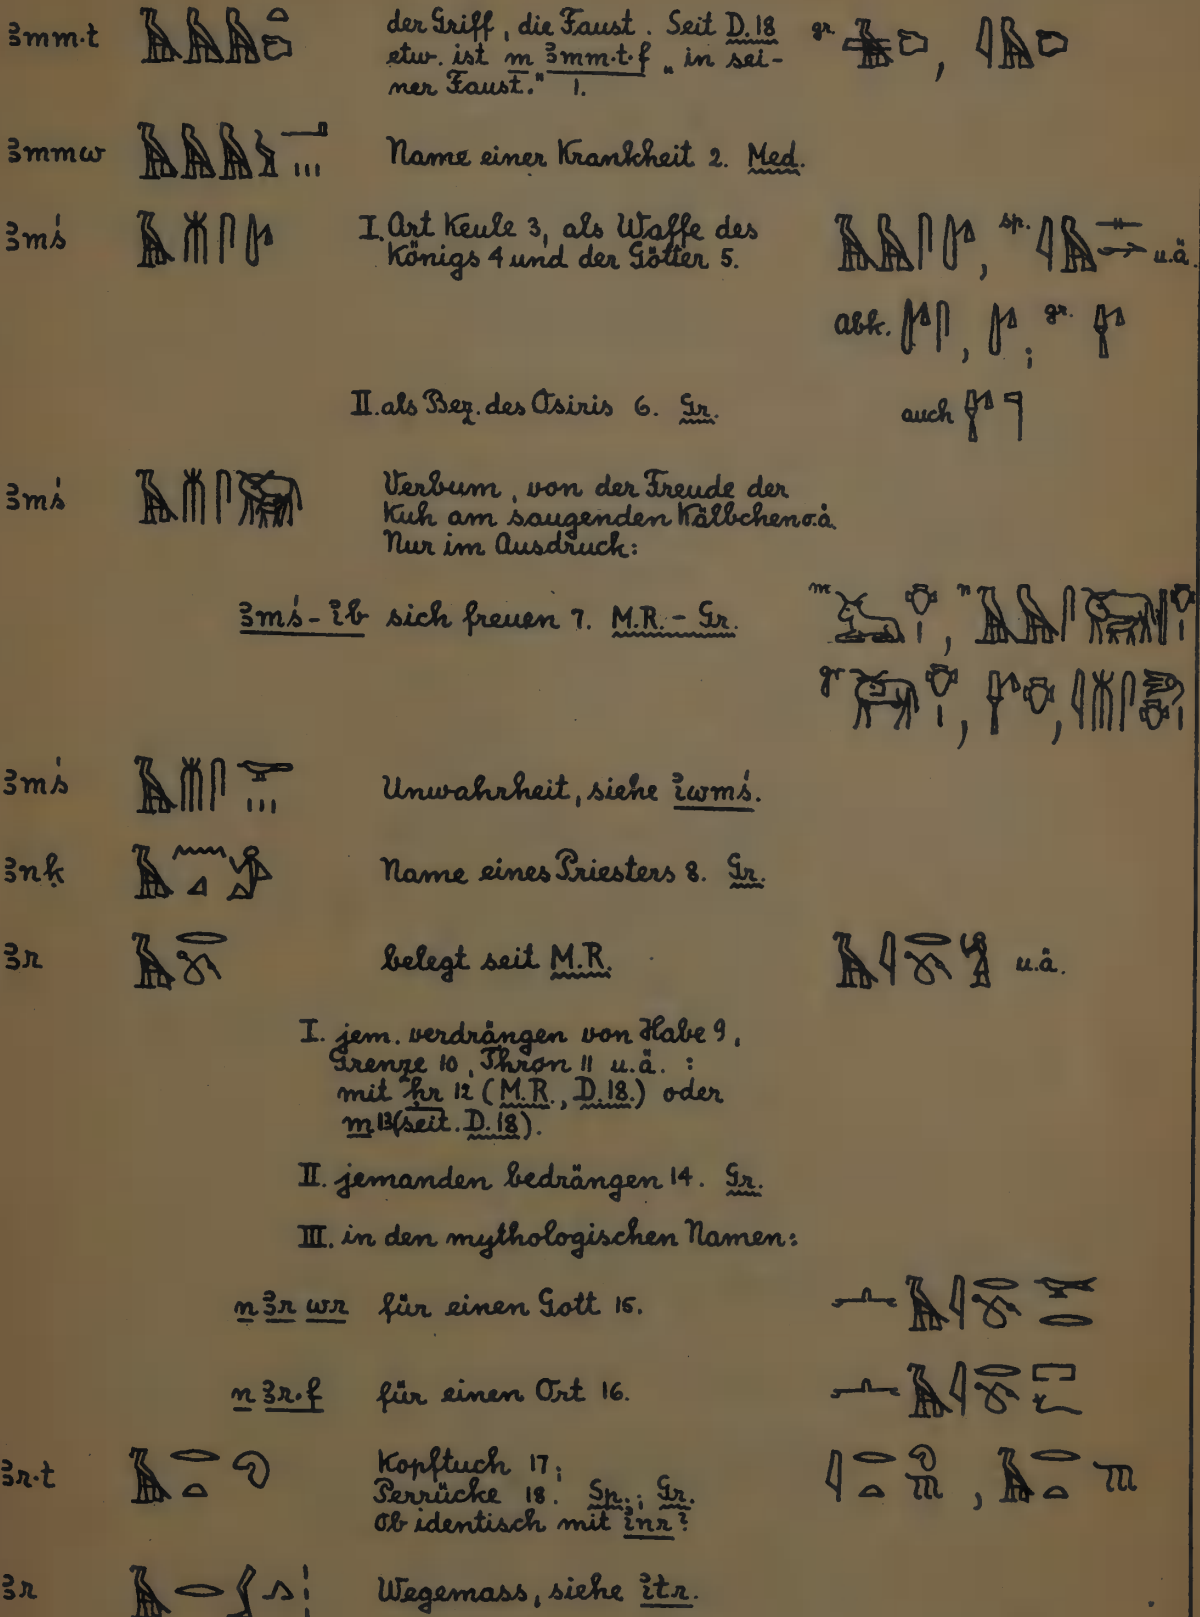 ꜣmm·t der Griff, die Faust. Seit D.18 gr. ,
etw. ist m ꜣmm·t·f „in sei-
ner Faust." 1.
ꜣmmw Name einer Krankheit 2. Med.
ꜣmś I. Art Keule 3, als Waffe des sp. u.ä.
Königs 4 und der Götter 5.
Abk. , ; gr.
II. als Bez. des Osiris 6. Gr. auch
ꜣmś Verbum, von der Freude der
Kuh am saugenden Kälbchen o.ä.
Nur im Ausdruck:
ꜣmś-ỉb sich freuen 7. M.R.-Gr. m , n
gr , ,
ꜣmś Unwahrheit, siehe ỉwmś.
ꜣnḳ Name eines Priesters 8. Gr.
ꜣr belegt seit M.R. u.ä.
I. jem. verdrängen von Habe 9,
Grenze 10, Thron 11 u.ä.:
mit ḥr 12 (M.R., D.18.) oder
m 13 (seit. D.18).
II. jemanden bedrängen 14. Gr.
III. in den mythologischen Namen:
n ꜣr wr für einen Gott 15.
n ꜣr·f für einen Ort 16.
ꜣr·t Kopftuch 17; ,
Perrücke 18. Sp.; Gr.
Ob identisch mit ỉnr?
ꜣr Wegemass, siehe ỉtr.